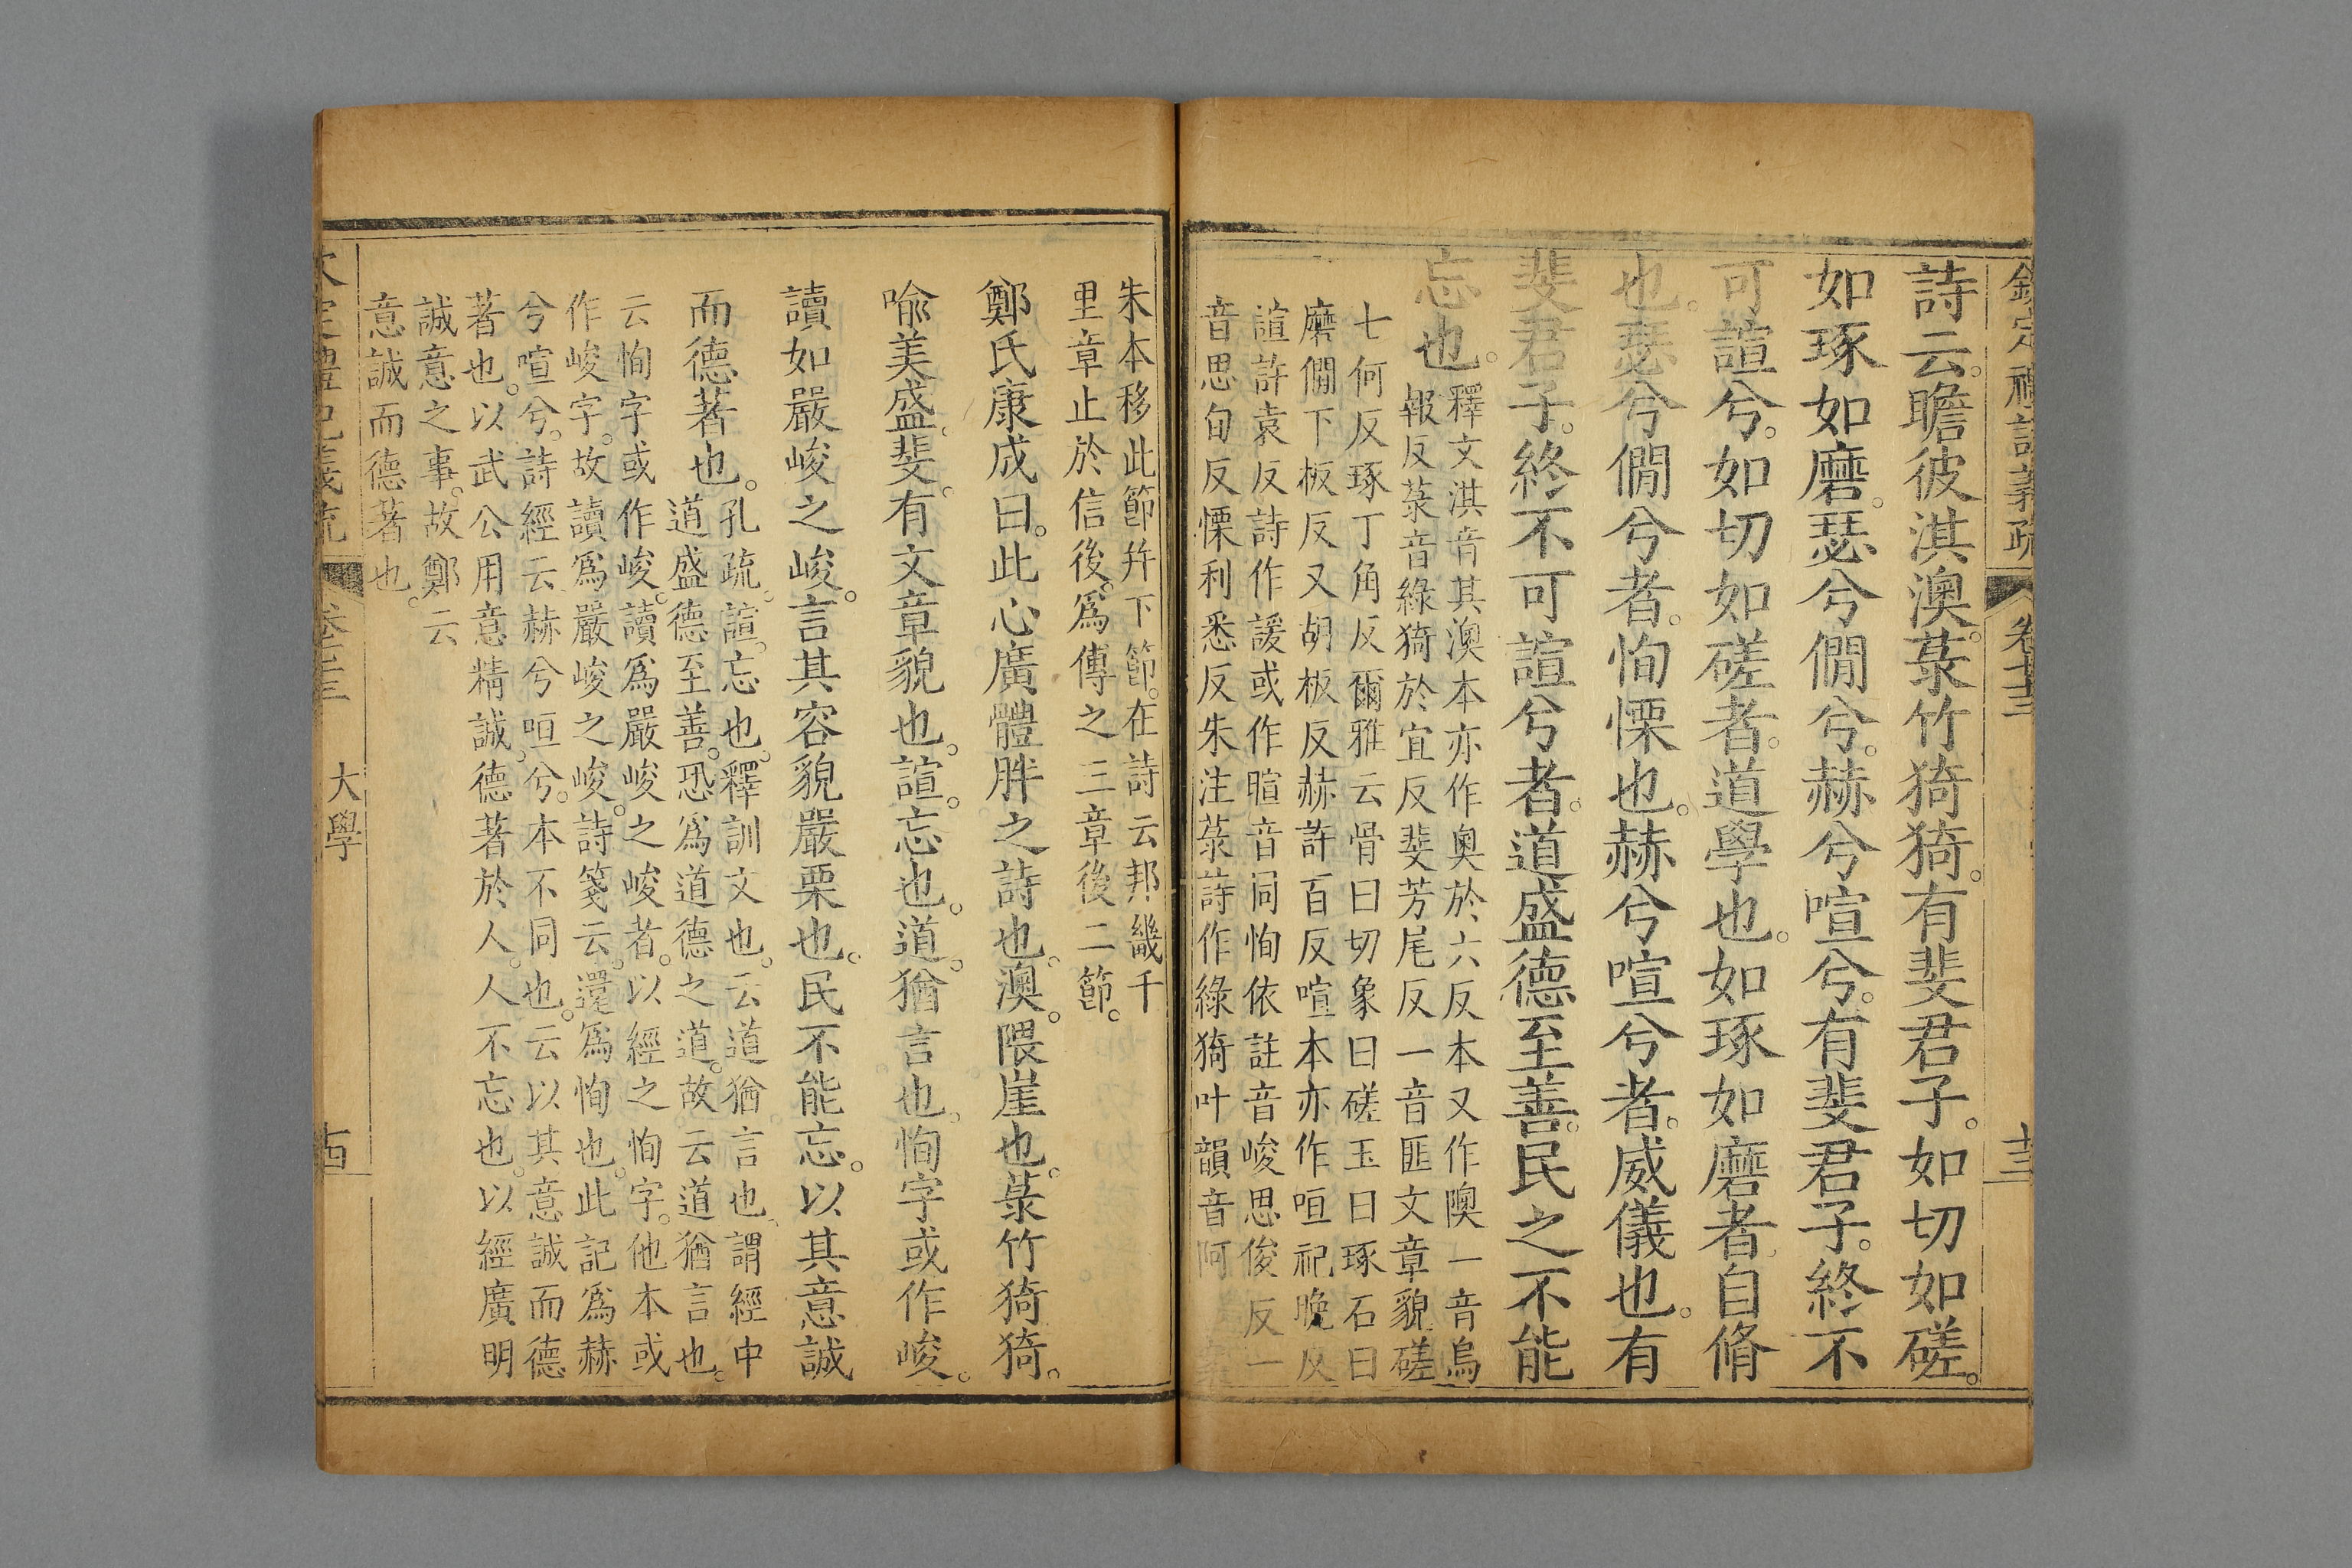 欽定禮記義疏 卷七十三 十三
詩云。瞻彼淇澳。菉竹猗猗。有斐君子。如切如磋。
如琢如磨。瑟兮僩兮。赫兮喧兮。有斐君子。終不
可諠兮。如切如磋者。道學也。如琢如磨者。自脩
也。瑟兮僩兮者。恂慄也。赫兮喧兮者。威儀也。有
斐君子。終不可諠兮者。道盛德至善。民之不能
忘也。
釋文淇音其澳本亦作奧於六反本又作隩一音烏
報反菉音綠猗於宜反斐芳尾反一音匪文章貌磋
七何反琢丁角反爾雅云骨曰切象曰磋玉曰琢石曰
磨僩下板反又胡板反赫許百反喧本亦作咺況晚反
諠許袁反詩作諼或作暄音同恂依註音峻思俊反一
音思旬反慄利悉反朱注菉詩作綠猗叶韻音阿
朱本移此節并下節。在詩云邦畿千
里章止於信後。爲傳之三章後二節。
鄭氏康成曰。此心廣體胖之詩也。澳。隈崖也。菉竹猗猗。
喩美盛。斐。有文章貌也。諠。忘也。道。猶言也。恂字或作峻。
讀如嚴峻之峻。言其容貌嚴栗也。民不能忘。以其意誠
而德著也。
孔疏。諠。忘也。釋訓文也。云道猶言也。謂經中
道盛德至善。恐爲道德之道。故云道猶言也。
云恂字或作峻。讀爲嚴峻之峻者。以經之恂字。他本或
作峻字。故讀爲嚴峻之峻。詩箋云。還爲恂也。此記爲赫
兮喧兮。詩經云赫兮咺兮。本不同也。云以其意誠而德
著也。以武公用意精誠。德著於人。人不忘也。以經廣明
誠意之事。故鄭云
意誠而德著也。
大學